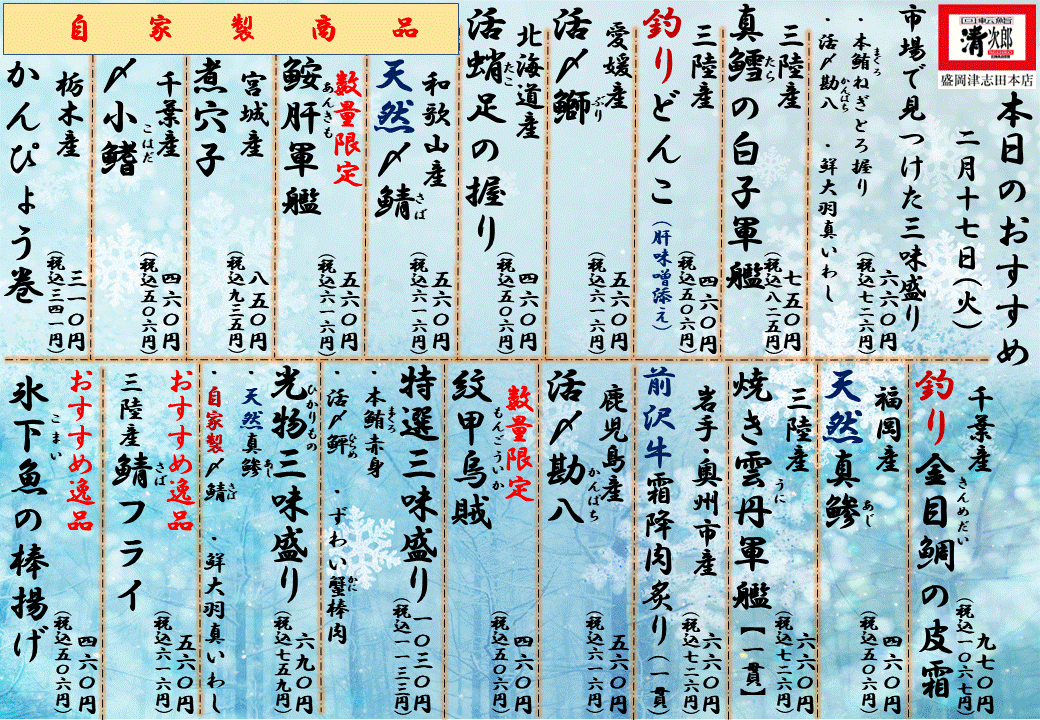 回転鮨
清次郎
盛岡津志田本店
本日のおすすめ
二月十七日(火)
市場で見つけた三味盛り
・本鮪ねぎとろ握り
まぐろ
・活〆勘八
かんぱち
・鮮大羽真いわし
六六〇円
(税込七二六円)
三陸産
真鱈の白子軍艦
たら
七五〇円
(税込八二五円)
三陸産
釣りどんこ
(肝味噌添え)
四六〇円
(税込五〇六円)
愛媛産
活〆鰤
ぶり
五六〇円
(税込六一六円)
北海道産
活蛸足の握り
たこ
四六〇円
(税込五〇六円)
自家製商品
和歌山産
天然〆鯖
さば
五六〇円
(税込六一六円)
数量限定
鮟肝軍艦
あんきも
五六〇円
(税込六一六円)
宮城産
煮穴子
八五〇円
(税込九三五円)
千葉産
〆小鰭
こはだ
四六〇円
(税込五〇六円)
栃木産
かんぴょう巻
三一〇円
(税込三四一円)
千葉産
釣り金目鯛の皮霜
きんめだい
九七〇円
(税込一〇六七円)
福岡産
天然真鯵
あじ
四六〇円
(税込五〇六円)
三陸産
焼き雲丹軍艦【一貫】
うに
六六〇円
(税込七二六円)
岩手・奥州市産
前沢牛霜降肉炙り(一貫)
六六〇円
(税込七二六円)
鹿児島産
活〆勘八
かんぱち
五六〇円
(税込六一六円)
数量限定
紋甲烏賊
もんごういか
四六〇円
(税込五〇六円)
特選三味盛り
・本鮪赤身
まぐろ
・活〆鮃
ひらめ
・ずわい蟹棒肉
かに
一〇三〇円
(税込一一三三円)
光物三味盛り
ひかりもの
・天然真鯵
あじ
・自家製〆鯖
さば
・鮮大羽真いわし
六九〇円
(税込七五九円)
おすすめ逸品
三陸産鯖フライ
さば
五六〇円
(税込六一六円)
おすすめ逸品
氷下魚の棒揚げ
こまい
四六〇円
(税込五〇六円)